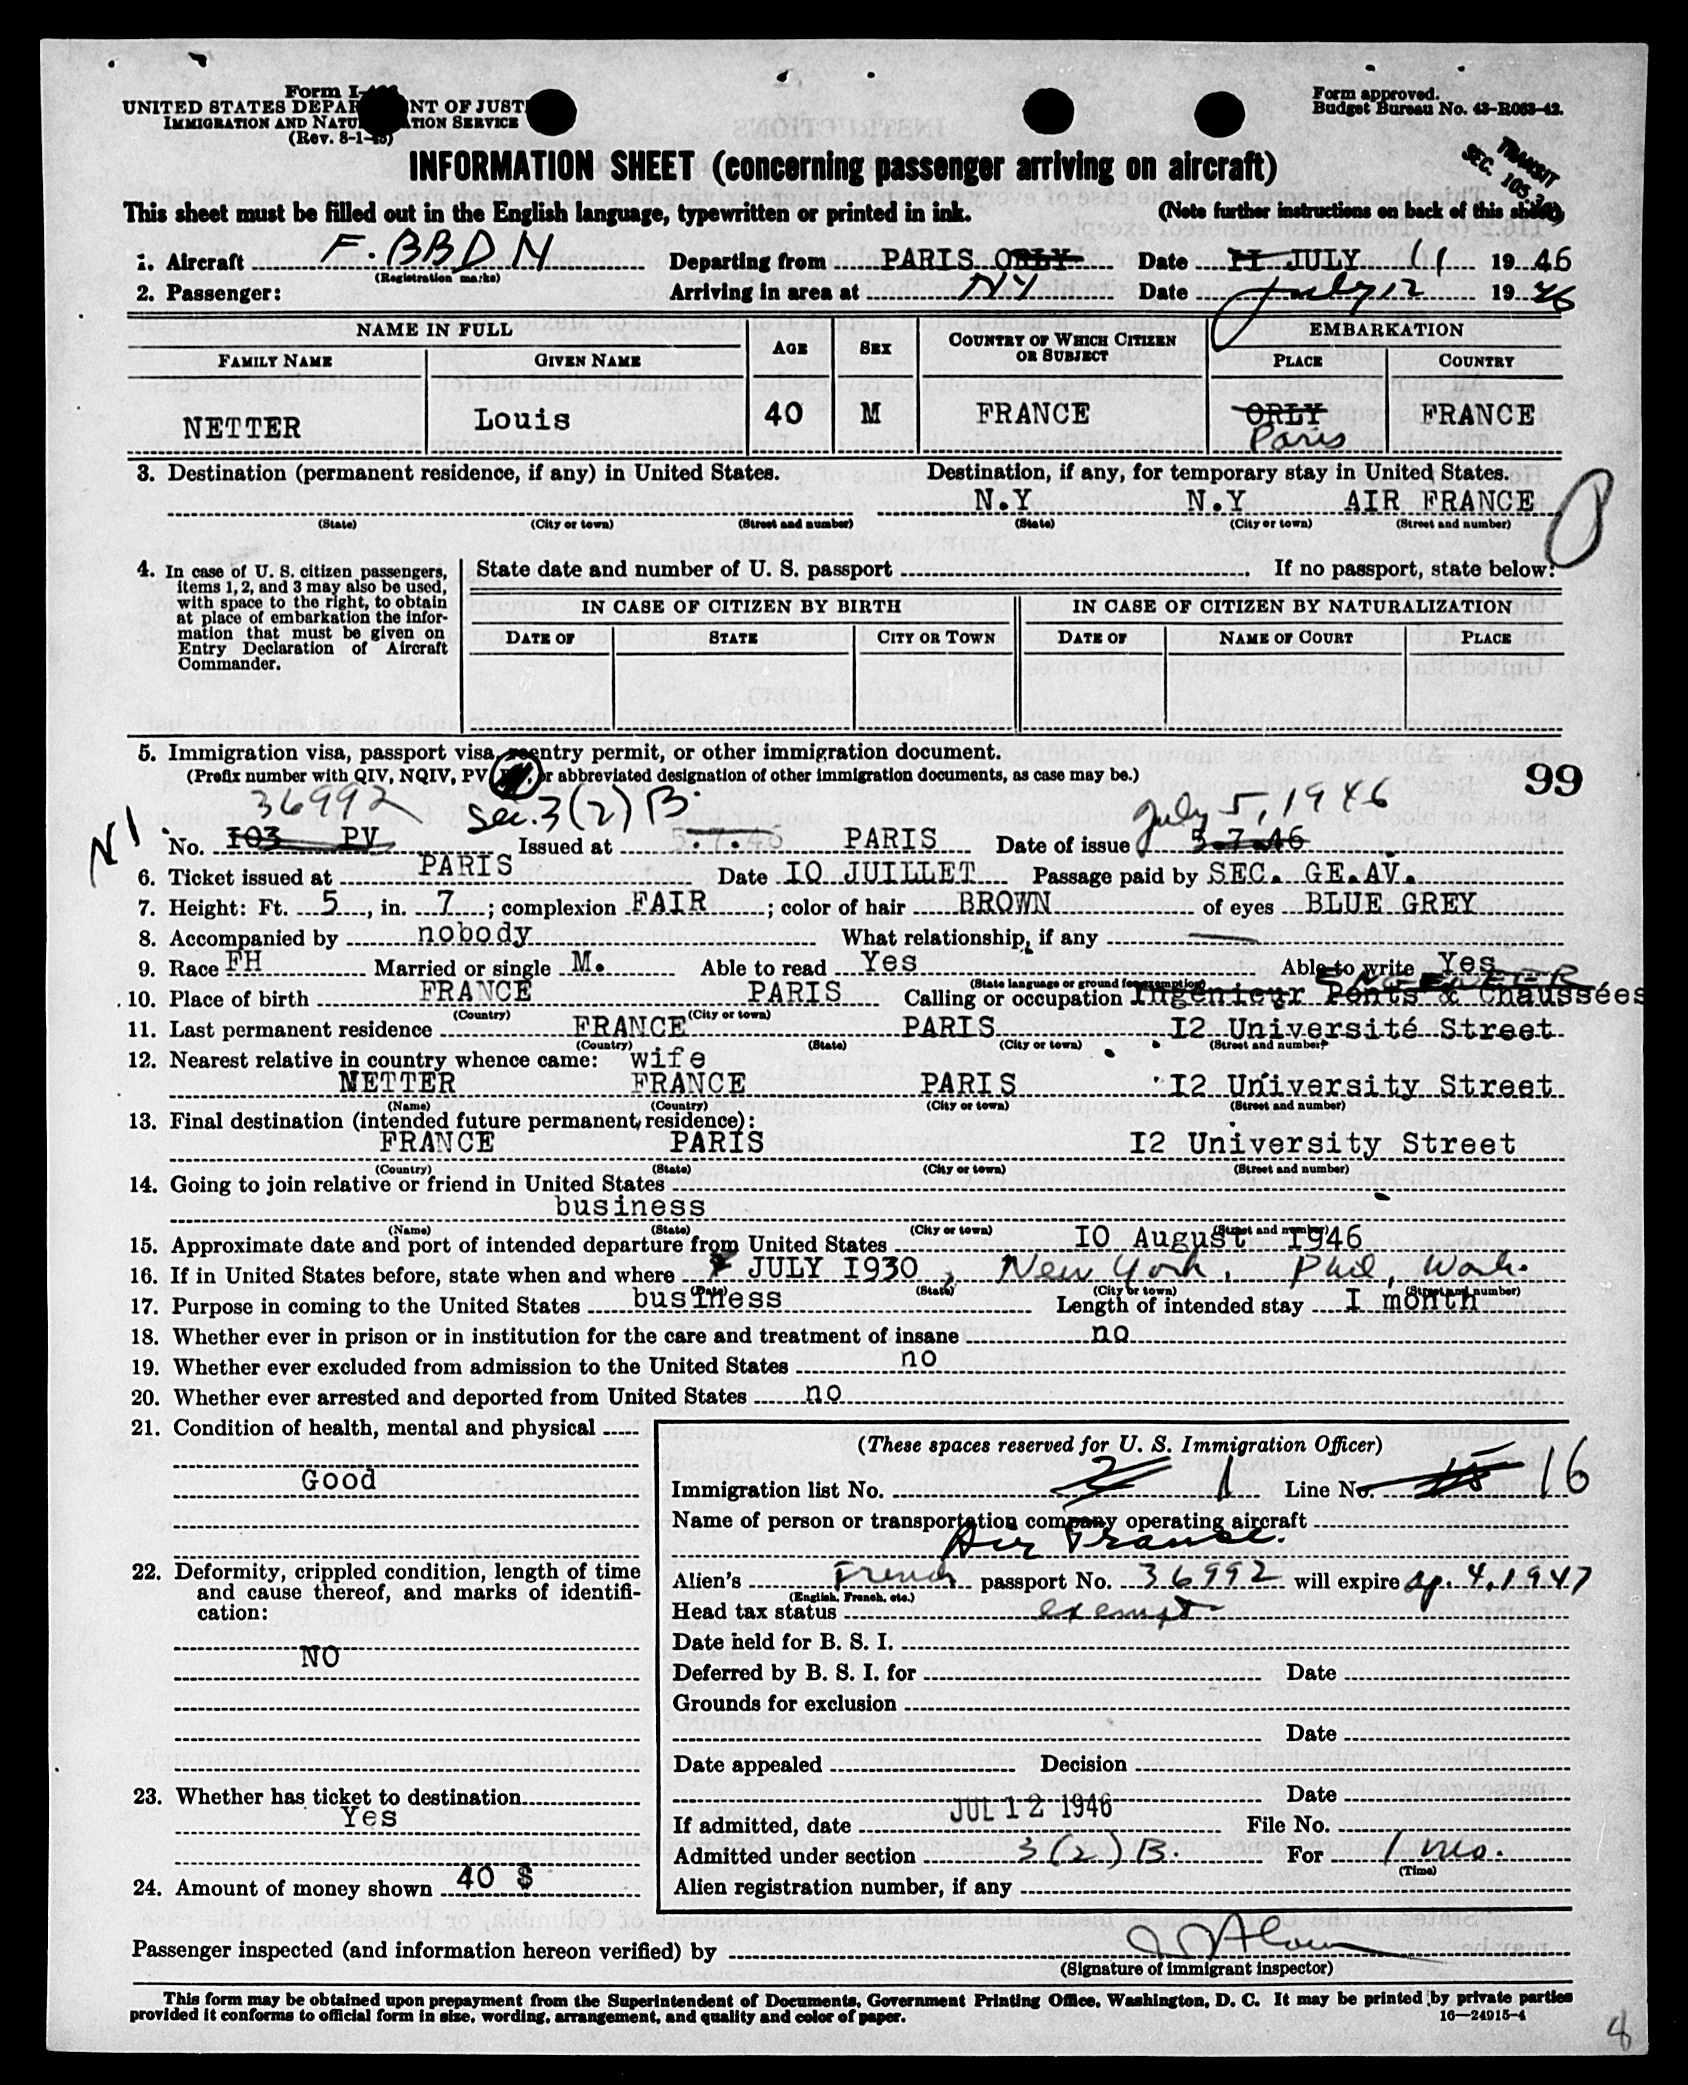 Form I-
UNITED STATES DEPAR NT OF JUST
IMMIGRATION AND NATU ATION SERVICE
(Rev. 8-1-45)
Form approved.
Budget Bureau No. 43-R063-42.
INFORMATION SHEET (concerning passenger arriving on aircraft)
TRANSIT
SEC. 105.3
This sheet must be filled out in the English language, typewritten or printed in ink. (Note further instructions on back of this sheet)
1. Aircraft F. BBDN Departing from PARIS ORLY Date II JULY 11 1946
(Registration marks)
2. Passenger: Arriving in area at NY Date July 12 1946
NAME IN FULL AGE SEX COUNTRY OF WHICH CITIZEN OR SUBJECT EMBARKATION
FAMILY NAME GIVEN NAME PLACE COUNTRY
NETTER Louis 40 M FRANCE ORLY FRANCE
Paris
3. Destination (permanent residence, if any) in United States. Destination, if any, for temporary stay in United States.
N.Y N.Y AIR FRANCE
(State) (City or town) (Street and number) (State) (City or town) (Street and number)
4. In case of U. S. citizen passengers, items 1, 2, and 3 may also be used, with space to the right, to obtain at place of embarkation the infor-
mation that must be given on Entry Declaration of Aircraft Commander.
State date and number of U. S. passport If no passport, state below:
IN CASE OF CITIZEN BY BIRTH IN CASE OF CITIZEN BY NATURALIZATION
DATE OF STATE CITY OR TOWN DATE OF NAME OF COURT PLACE
5. Immigration visa, passport visa, reentry permit, or other immigration document.
(Prefix number with QIV, NQIV, PV or abbreviated designation of other immigration documents, as case may be.) 99
36992 Sec. 3(2)B. July 5, 1946
N1
No. I03 PV Issued at 5.7.46 PARIS Date of issue 5.7.46
6. Ticket issued at PARIS Date IO JUILLET Passage paid by SEC. GE.AV.
7. Height: Ft. 5, in. 7; complexion FAIR; color of hair BROWN of eyes BLUE GREY
8. Accompanied by nobody What relationship, if any
9. Race FH Married or single M. Able to read Yes Able to write Yes
(State language or ground for exemption)
ENGENEER
10. Place of birth FRANCE PARIS Calling or occupation Ingénieur Ponts & Chaussées
(Country) (City or town)
11. Last permanent residence FRANCE PARIS I2 Université Street
(Country) (State) (City or town) (Street and number)
12. Nearest relative in country whence came: wife
NETTER FRANCE PARIS I2 University Street
(Name) (Country) (City or town) (Street and number)
13. Final destination (intended future permanent residence):
FRANCE PARIS I2 University Street
(Country) (State) (City or town) (Street and number)
14. Going to join relative or friend in United States
business
(Name) (State) (City or town) (Street and number)
15. Approximate date and port of intended departure from United States IO August I946
16. If in United States before, state when and where JULY I930, New York,
(Date) (State) (City or town) (Street and number)
17. Purpose in coming to the United States business Length of intended stay I month
18. Whether ever in prison or in institution for the care and treatment of insane no
19. Whether ever excluded from admission to the United States no
20. Whether ever arrested and deported from United States no
21. Condition of health, mental and physical
Good
22. Deformity, crippled condition, length of time
and cause thereof, and marks of identifi-
cation:
NO
23. Whether has ticket to destination
Yes
24. Amount of money shown 40 $
(These spaces reserved for U. S. Immigration Officer)
Immigration list No. 2 1 Line No. 15 16
Name of person or transportation company operating aircraft
Air France.
Alien's French passport No. 36992 will expire Ap. 4, 1947
(English, French, etc.)
Head tax status exempt
Date held for B. S. I.
Deferred by B. S. I. for Date
Grounds for exclusion
Date
Date appealed Decision
Date
If admitted, date JUL 12 1946 File No.
Admitted under section 3(2)B. For 1 mo.
(Time)
Alien registration number, if any
Passenger inspected (and information hereon verified) by
(Signature of immigrant inspector)
This form may be obtained upon prepayment from the Superintendent of Documents, Government Printing Office, Washington, D. C. It may be printed by private parties
provided it conforms to official form in size, wording, arrangement, and quality and color of paper. 16—24915-4
8